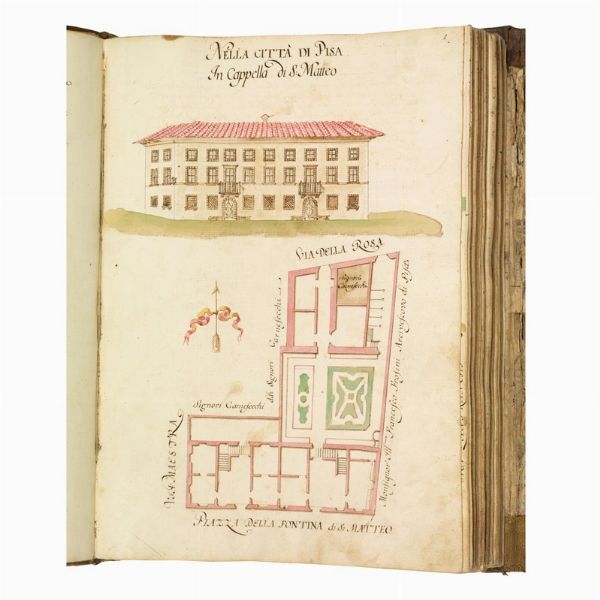 NELLA CITTÀ DI PISA
In Cappella di S. Matteo
1.
VIA DELLA ROSA
Signori
Carnesecchi
delli Signori Carnesecchi
Signori Carnesecchi
VIA MAESTRA
Monsignor Ill.mo Francesco Frosini Arcivescovo di Pisa
PIAZZA DELLA FONTINA di S. MATTEO